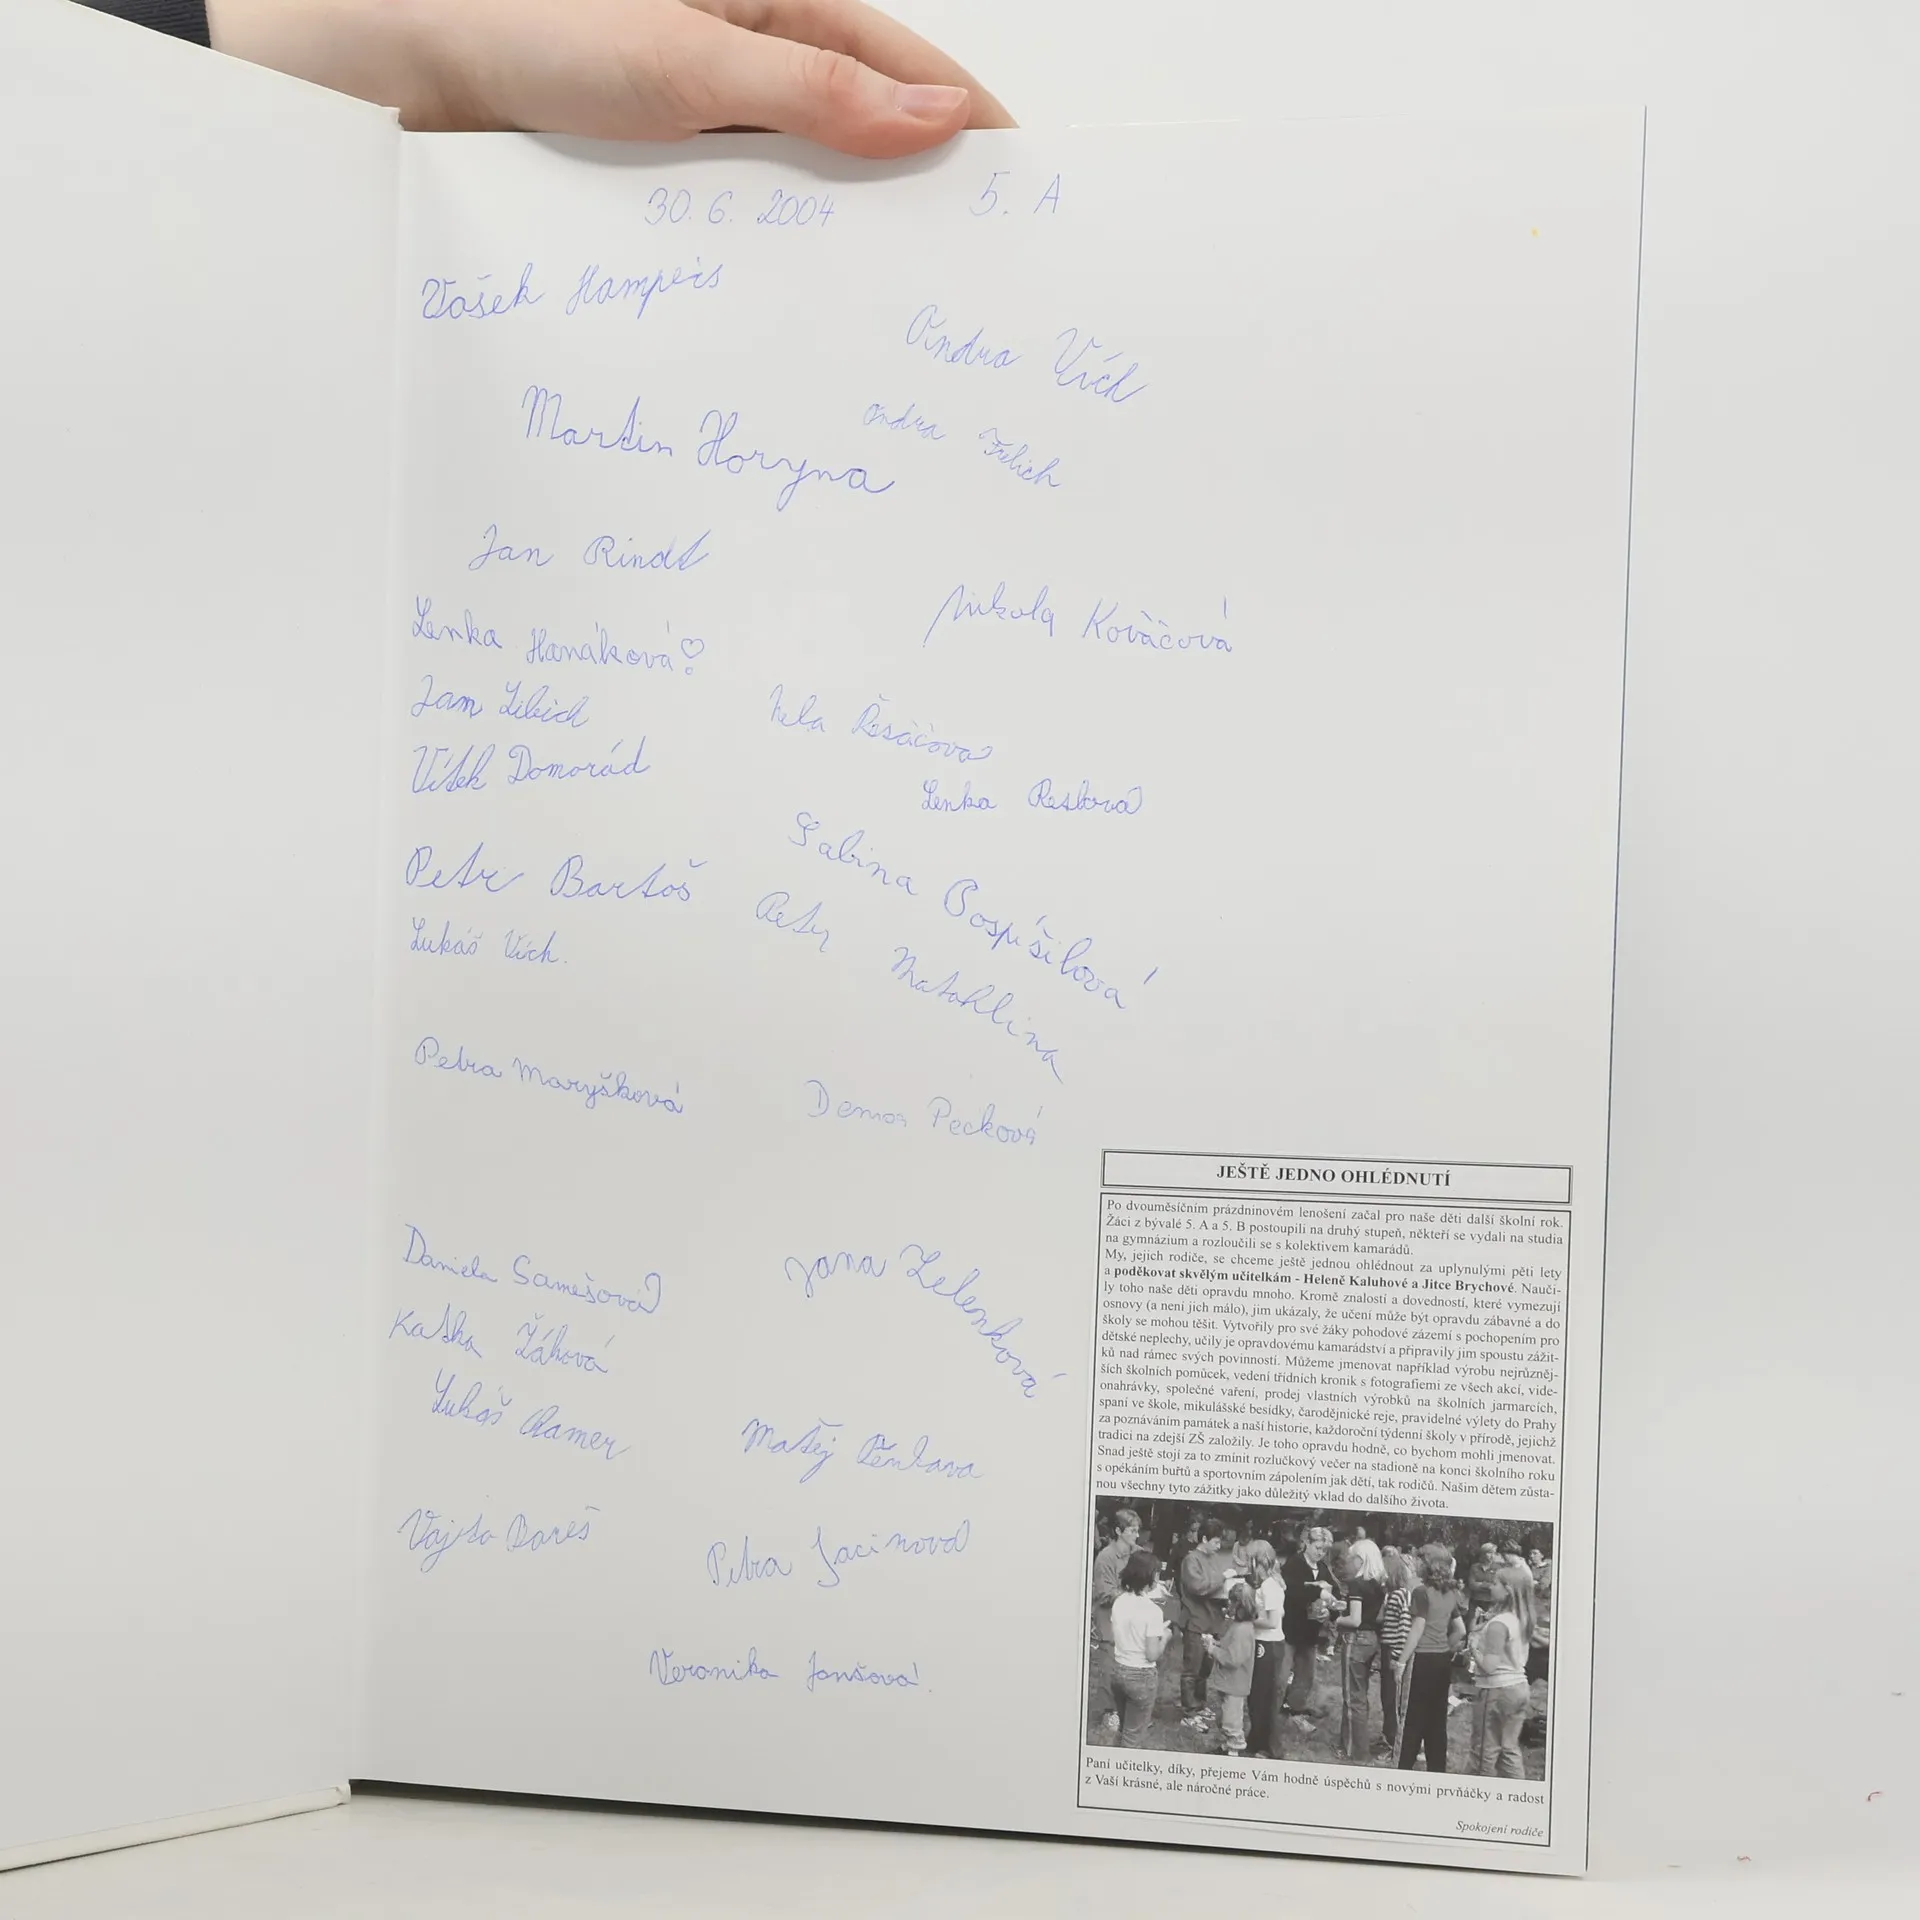 30. 6. 2004 5. A
Vašek Hampejs
Ondra Vích
Martin Horyna
Ondra
Jan Rindt
Nikola Kováčová
Lenka Hanáková
Jan Libich
Nela
Vítek Domorád
Lenka
Sabina Pospíšilová
Petr Bartoš
Petr Matohlina
Lukáš Vích.
Petra Maryšková
Pecková
Daniela Samešová
Jana Zelenková
Katka Žáková
Lukáš
Matěj
Vojta Bareš
Petra Jacinová
Veronika Janšová.
JEŠTĚ JEDNO OHLÉDNUTÍ
Po dvouměsíčním prázdninovém lenošení začal pro naše děti další školní rok.
Žáci z bývalé 5. A a 5. B postoupili na druhý stupeň, někteří se vydali na studia
na gymnázium a rozloučili se s kolektivem kamarádů.
My, jejich rodiče, se chceme ještě jednou ohlédnout za uplynulými pěti lety
a poděkovat skvělým učitelkám - Heleně Kaluhové a Jitce Brychové. Nauči-
ly toho naše děti opravdu mnoho. Kromě znalostí a dovedností, které vymezují
osnovy (a není jich málo), jim ukázaly, že učení může být opravdu zábavné a do
školy se mohou těšit. Vytvořily pro své žáky pohodové zázemí s pochopením pro
dětské neplechy, učily je opravdovému kamarádství a připravily jim spoustu zážit-
ků nad rámec svých povinností. Můžeme jmenovat například výrobu nejrůzněj-
ších školních pomůcek, vedení třídních kronik s fotografiemi ze všech akcí, vide-
onahrávky, společné vaření, prodej vlastních výrobků na školních jarmarcích,
spaní ve škole, mikulášské besídky, čarodějnické reje, pravidelné výlety do Prahy
za poznáváním památek a naší historie, každoroční týdenní školy v přírodě, jejichž
tradici na zdejší ZŠ založily. Je toho opravdu hodně, co bychom mohli jmenovat.
Snad ještě stojí za to zmínit rozlučkový večer na stadioně na konci školního roku
s opékáním buřtů a sportovním zápolením jak dětí, tak rodičů. Našim dětem zůsta-
nou všechny tyto zážitky jako důležitý vklad do dalšího života.
Paní učitelky, díky, přejeme Vám hodně úspěchů s novými prvňáčky a radost
z Vaší krásné, ale náročné práce.
Spokojení rodiče